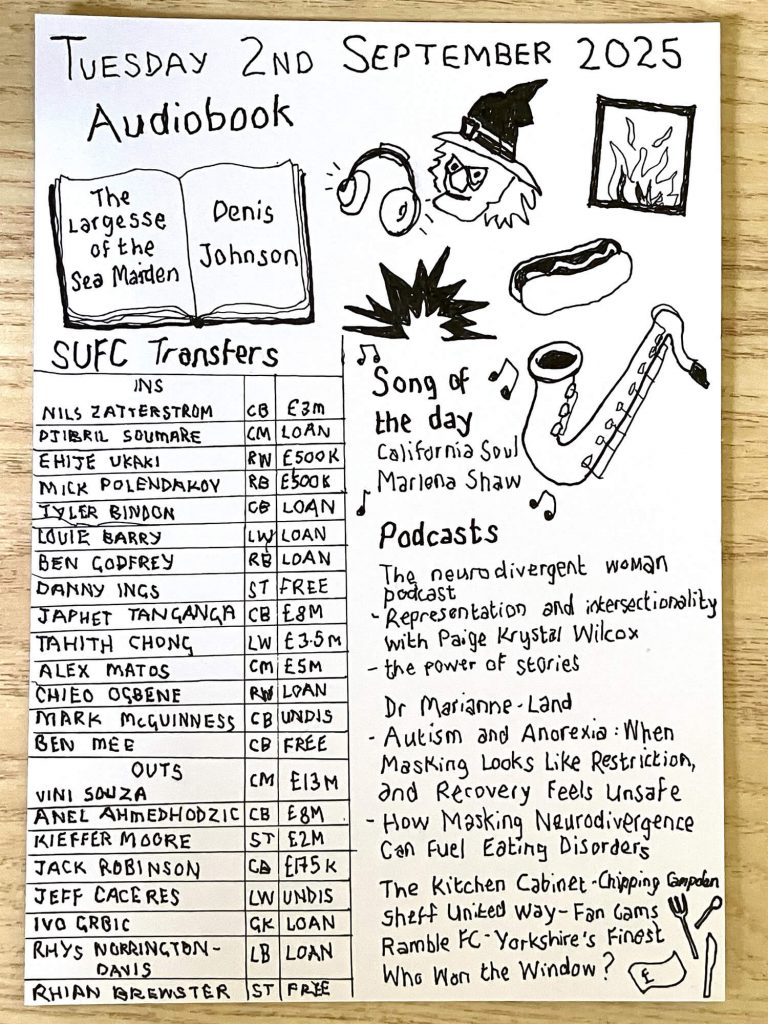 TUESDAY 2ND SEPTEMBER 2025
Audiobook
The
Largesse
of the
Sea Maiden
Denis
Johnson
SUFC Transfers
INS
NILS ZATTERSTROM CB £3M
DJIBRIL SOUMARE CM LOAN
EHIJE UKAKI RW £500K
MICK POLENDAKOV RB £500K
TYLER BINDON CB LOAN
LOUIE BARRY LW LOAN
BEN GODFREY RB LOAN
DANNY INGS ST FREE
JAPHET TANGANGA CB £8M
TAHITH CHONG LW £3.5M
ALEX MATOS CM £5M
CHIEO OGBENE RW LOAN
MARK McGUINNESS CB UNDIS
BEN MEE CB FREE
OUTS
VINI SOUZA CM £13M
ANEL AHMEDHODZIC CB £8M
KIEFFER MOORE ST £2M
JACK ROBINSON CB £175K
JEFF CACERES LW UNDIS
IVO GRBIC GK LOAN
RHYS NORRINGTON-
DAVIS LB LOAN
RHIAN BREWSTER ST FREE
Song of
the day
California Soul
Marlena Shaw
Podcasts
The neurodivergent woman
podcast
- Representation and intersectionality
with Paige Krystal Wilcox
- the power of stories
Dr Marianne-Land
- Autism and Anorexia: When
Masking Looks Like Restriction,
and Recovery Feels Unsafe
- How Masking Neurodivergence
Can Fuel Eating Disorders
The Kitchen Cabinet - Chipping Campden
Sheff United Way - Fan Gams
Ramble FC - Yorkshire's Finest
Who Won the Window?
£